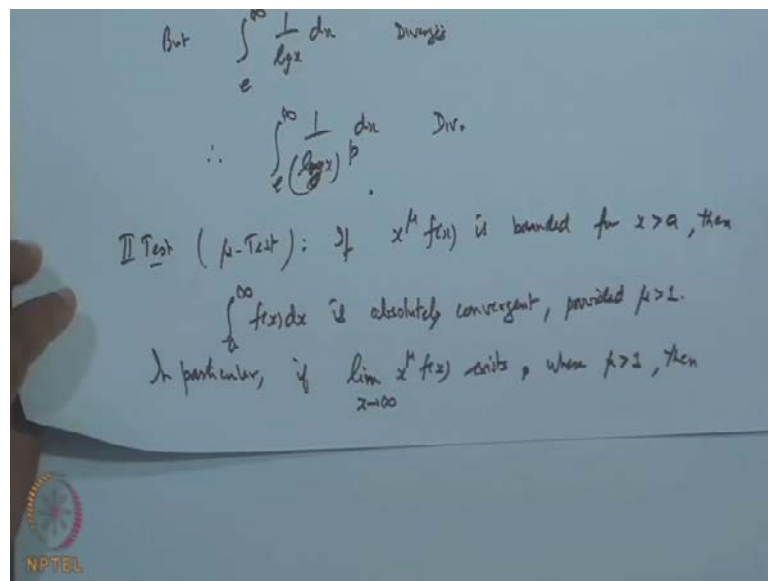 But ∫_e^∞ 1/lgx dx Diverges
∴ ∫_e^∞ 1/(logx)^p dx Div.
II Test (μ-Test): If x^μ f(x) is bounded for x>a, then
∫_a^∞ f(x)dx is absolutely convergent, provided μ>1.
In particular, if lim_{x→∞} x^μ f(x) exists, where μ>1, then
NPTEL